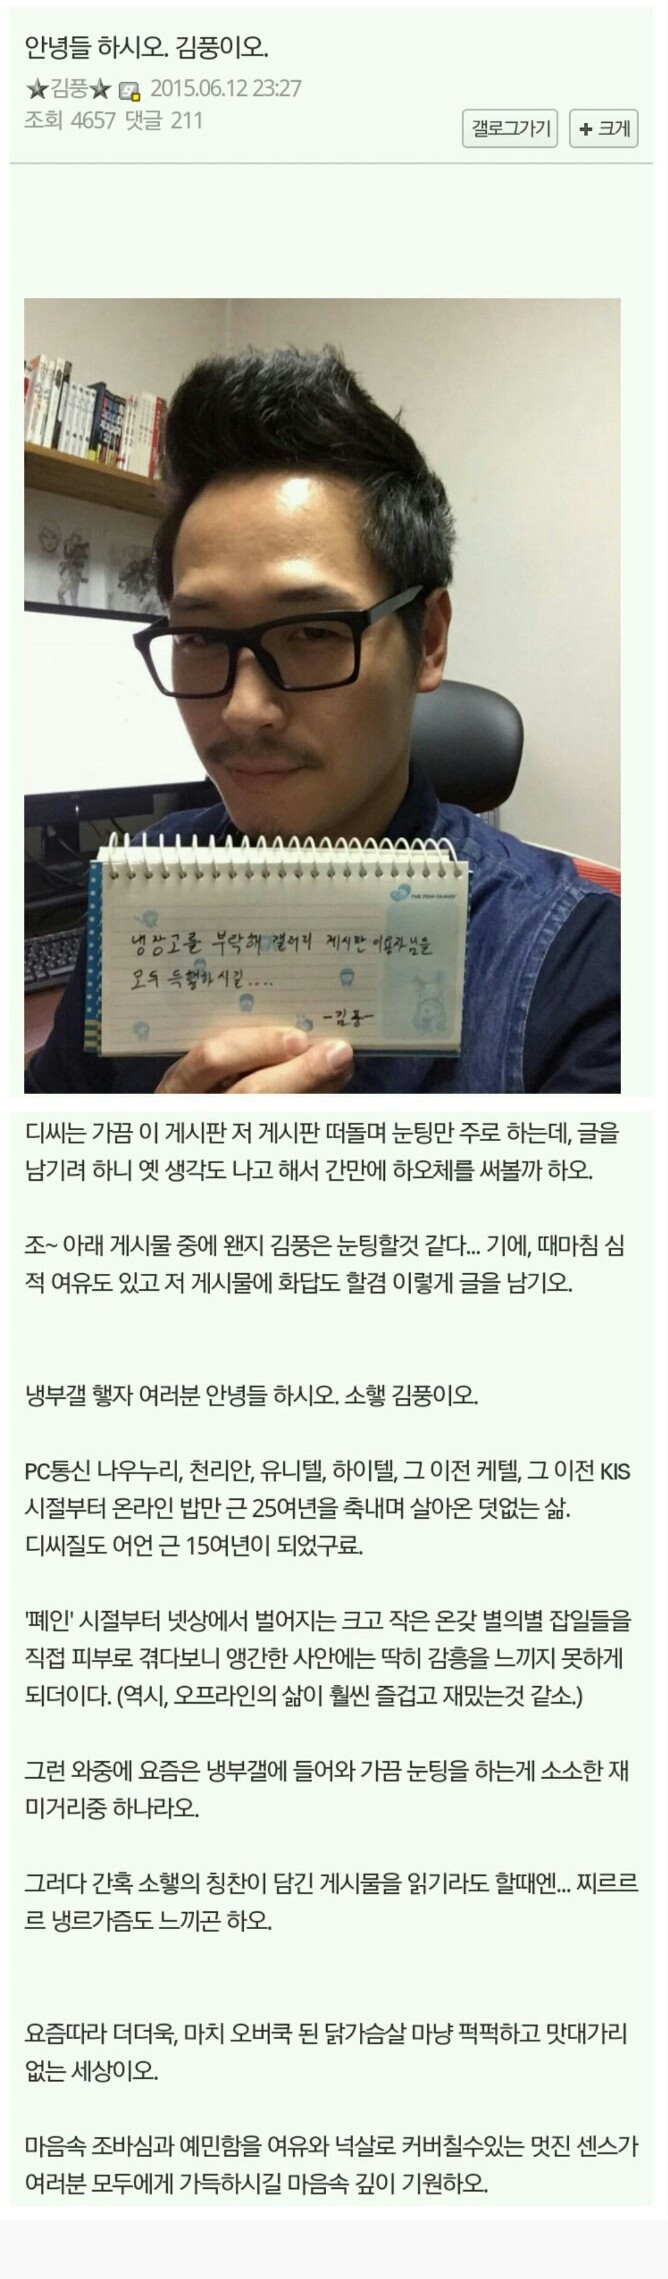 안녕들 하시오. 김풍이오.
★김풍★ 2015.06.12 23:27
조회 4657 댓글 211
갤로그가기 + 크게
냉장고를 부탁해 갤러리 게시판 이용자님들
모두 득햏하시길....
-김풍-
디씨는 가끔 이 게시판 저 게시판 떠돌며 눈팅만 주로 하는데, 글을
남기려 하니 옛 생각도 나고 해서 간만에 하오체를 써볼까 하오.
조~ 아래 게시물 중에 왠지 김풍은 눈팅할것 같다... 기에, 때마침 심
적 여유도 있고 저 게시물에 화답도 할겸 이렇게 글을 남기오.
냉부갤 햏자 여러분 안녕들 하시오. 소햏 김풍이오.
PC통신 나우누리, 천리안, 유니텔, 하이텔, 그 이전 케텔, 그 이전 KIS
시절부터 온라인 밥만 근 25여년을 축내며 살아온 덧없는 삶.
디씨질도 어언 근 15여년이 되었구료.
'폐인' 시절부터 넷상에서 벌어지는 크고 작은 온갖 별의별 잡일들을
직접 피부로 겪다보니 앵간한 사안에는 딱히 감흥을 느끼지 못하게
되더이다. (역시, 오프라인의 삶이 훨씬 즐겁고 재밌는것 같소.)
그런 와중에 요즘은 냉부갤에 들어와 가끔 눈팅을 하는게 소소한 재
미거리중 하나라오.
그러다 간혹 소햏의 칭찬이 담긴 게시물을 읽기라도 할때엔... 찌르르
르 냉르가즘도 느끼곤 하오.
요즘따라 더더욱, 마치 오버쿡 된 닭가슴살 마냥 퍽퍽하고 맛대가리
없는 세상이오.
마음속 조바심과 예민함을 여유와 넉살로 커버칠수있는 멋진 센스가
여러분 모두에게 가득하시길 마음속 깊이 기원하오.